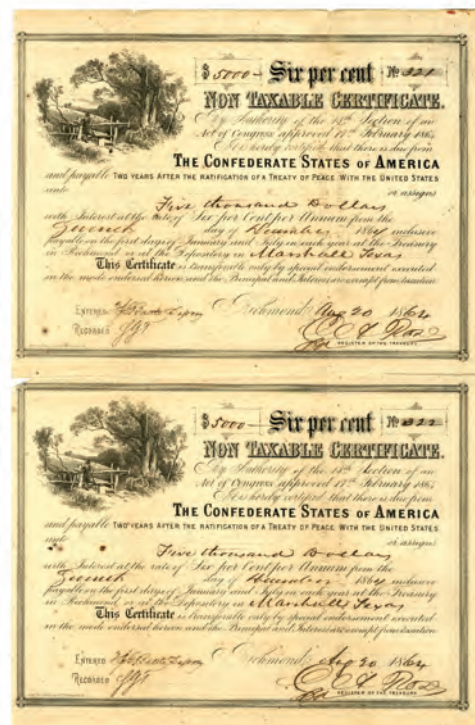 $ 5000 - Six per cent No 321
NON TAXABLE CERTIFICATE.
By Authority of the 14th Section of an
Act of Congress approved 17th February 1864
It is hereby certified that there is due from
THE CONFEDERATE STATES OF AMERICA
and payable TWO YEARS AFTER THE RATIFICATION OF A TREATY OF PEACE WITH THE UNITED STATES
unto or assigns
Five thousand Dollars
with Interest at the rate of Six per Cent per Annum from the
day of December 1864 inclusive
payable on the first days of January and July in each year at the Treasury
in Richmond or at the Depository in Marshall Texas
This Certificate is transferable only by special endorsement executed
in the mode endorsed hereon and the Principal and Interest are exempt from taxation
ENTERED Richmond, Aug 20 1864
RECORDED
REGISTER OF THE TREASURY.
$ 5000 - Six per cent No 322
NON TAXABLE CERTIFICATE.
By Authority of the 14th Section of an
Act of Congress approved 17th February 1864
It is hereby certified that there is due from
THE CONFEDERATE STATES OF AMERICA
and payable TWO YEARS AFTER THE RATIFICATION OF A TREATY OF PEACE WITH THE UNITED STATES
unto or assigns
Five thousand Dollars
with Interest at the rate of Six per Cent per Annum from the
day of December 1864 inclusive
payable on the first days of January and July in each year at the Treasury
in Richmond or at the Depository in Marshall Texas
This Certificate is transferable only by special endorsement executed
in the mode endorsed hereon and the Principal and Interest are exempt from taxation
ENTERED Richmond, Aug 20 1864
RECORDED
REGISTER OF THE TREASURY.